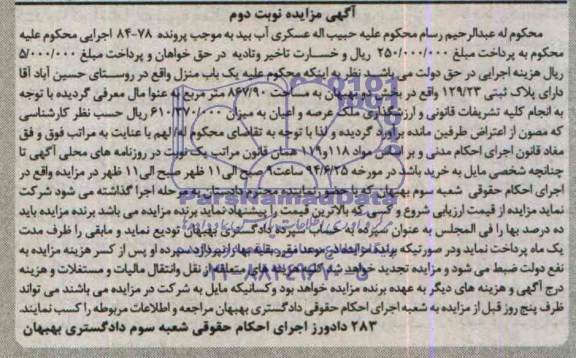 آگهی مزایده نوبت دوم
محکوم له عبدالرحیم رسام محکوم علیه حبیب اله عسکری آب بید به موجب پرونده ۷۸-۸۴ اجرایی محکوم علیه
محکوم به پرداخت مبلغ ۲۵۰/۰۰۰/۰۰۰ ریال و خسارت تاخیر وتادیه در حق خواهان و پرداخت مبلغ ۵/۰۰۰/۰۰۰
ریال هزینه اجرایی در حق دولت می باشد. نظر به اینکه محکوم علیه یک باب منزل واقع در روستای حسین آباد آقا
دارای پلاک ثبتی ۱۲۹/۲۳ واقع در بخش دو بهبهان به مساحت ۸۶۷/۹۰ متر مربع به عنوا مال معرفی گردیده با توجه
به انجام کلیه تشریفات قانونی و ارزیگذاری ملک عرصه و اعیان به میزان ۶۱۰/۳۷۰/۰۰۰ ریال حسب نظر کارشناسی
که مصون از اعتراض طرفین مانده برآورد گردیده و لذا با توجه به تقاضای محکوم له/ لهم با عنایت به مراتب فوق و فق
مفاد قانون اجرای احکام مدنی و بر اساس مواد ۱۱۸ و ۱۱۹ همان قانون مراتب یک نوبت در روزنامه های محلی آگهی تا
چنانچه شخصی مایل به خرید باشد در مورخه ۹۴/۶/۲۵ ساعت ۹ صبح الی ۱۱ ظهر صبح الی ۱۱ ظهر در مزایده واقع در
اجرای احکام حقوقی شعبه سوم بهبهان که با حضور نماینده محترم دادستان به مرحله اجرا گذاشته می شود شرکت
نماید مزایده از قیمت ارزیابی شروع و کسی که بالاترین قیمت را پیشنهاد نماید برنده مزایده می باشد برنده مزایده باید
ده درصد بها را فی المجلس به عنوان سپرده به حساب سپرده دادگستری تودیع نماید و مابقی را ظرف مدت
یک ماه پرداخت نماید ودر صورتیکه برنده مزایده در موعد مقرر بقیه بها را نپردازد سپرده او پس از کسر هزینه مزایده به
نفع دولت ضبط می شود و مزایده تجدید خواهد شد کلیه هزینه های متعلقه از نقل وانتقال مالیات و مستغلات و هزینه
درج آگهی و هزینه های دیگر به عهده برنده مزایده خواهد بود وکسانیکه مایل به شرکت در مزایده می باشند می تواند
ظرف پنج روز قبل از مزایده به شعبه اجرای احکام حقوقی دادگستری بهبهان مراجعه و اطلاعات مربوطه را کسب نمایند.
۲۸۳ دادورز اجرای احکام حقوقی شعبه سوم دادگستری بهبهان
ParsNamadData